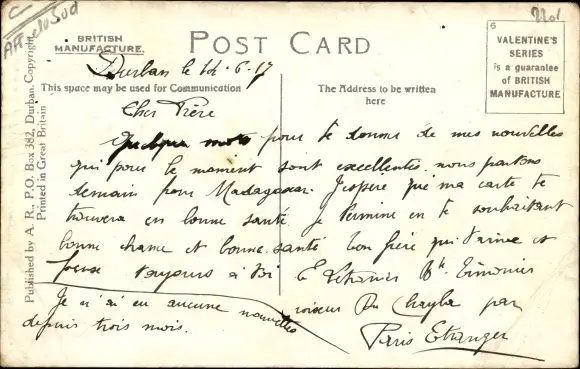 Af. du Sud
BRITISH
MANUFACTURE.
POST CARD
6
VALENTINE'S
SERIES
is a guarantee
of BRITISH
MANUFACTURE
Durban le 12.6.17
This space may be used for Communication
The Address to be written
here
Published by A. R., P.O. Box 382, Durban. Copyright
Printed in Great Britain
Cher Frère
Quelque mots pour te donner de mes nouvelles
qui pour le moment sont excellentes. nous partons
demain pour Madagascar. J'espère que ma carte te
trouvera en bonne santé je termine en te souhaitant
bonne chance et bonne santé ton frère qui t'aime et
pense toujours à toi
Bt Timonier
croiseur Du Chayla par
Paris Etranger
Je n'ai eu aucune nouvelles
depuis trois mois.